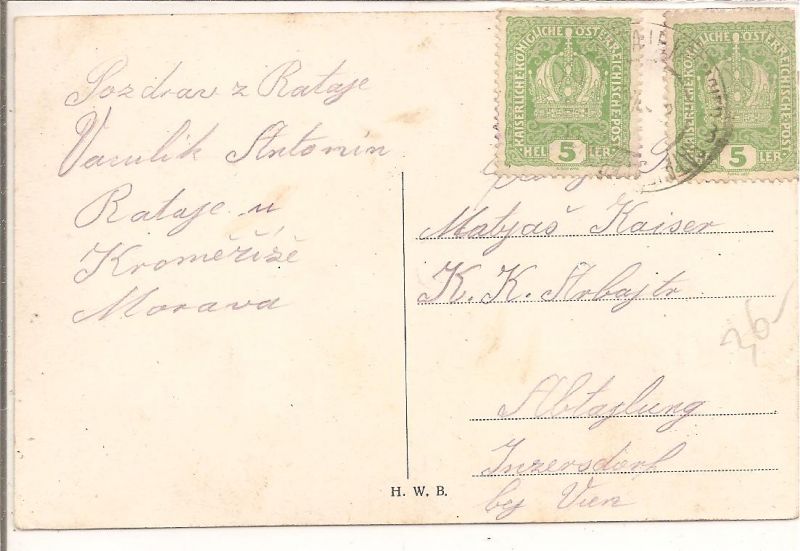 Pozdrav z Rataje
Vaculik Antonin
Rataje u
Kroměříže
Morava
KAISERLICHE KÖNIGLICHE ÖSTERREICHISCHE POST
5
HELLER
KAISERLICHE KÖNIGLICHE ÖSTERREICHISCHE POST
5
HELLER
Matjaš Kaiser
K. K. Arbajtr
Abtajlung
Inzersdorf
by Vien
36
H. W. B.